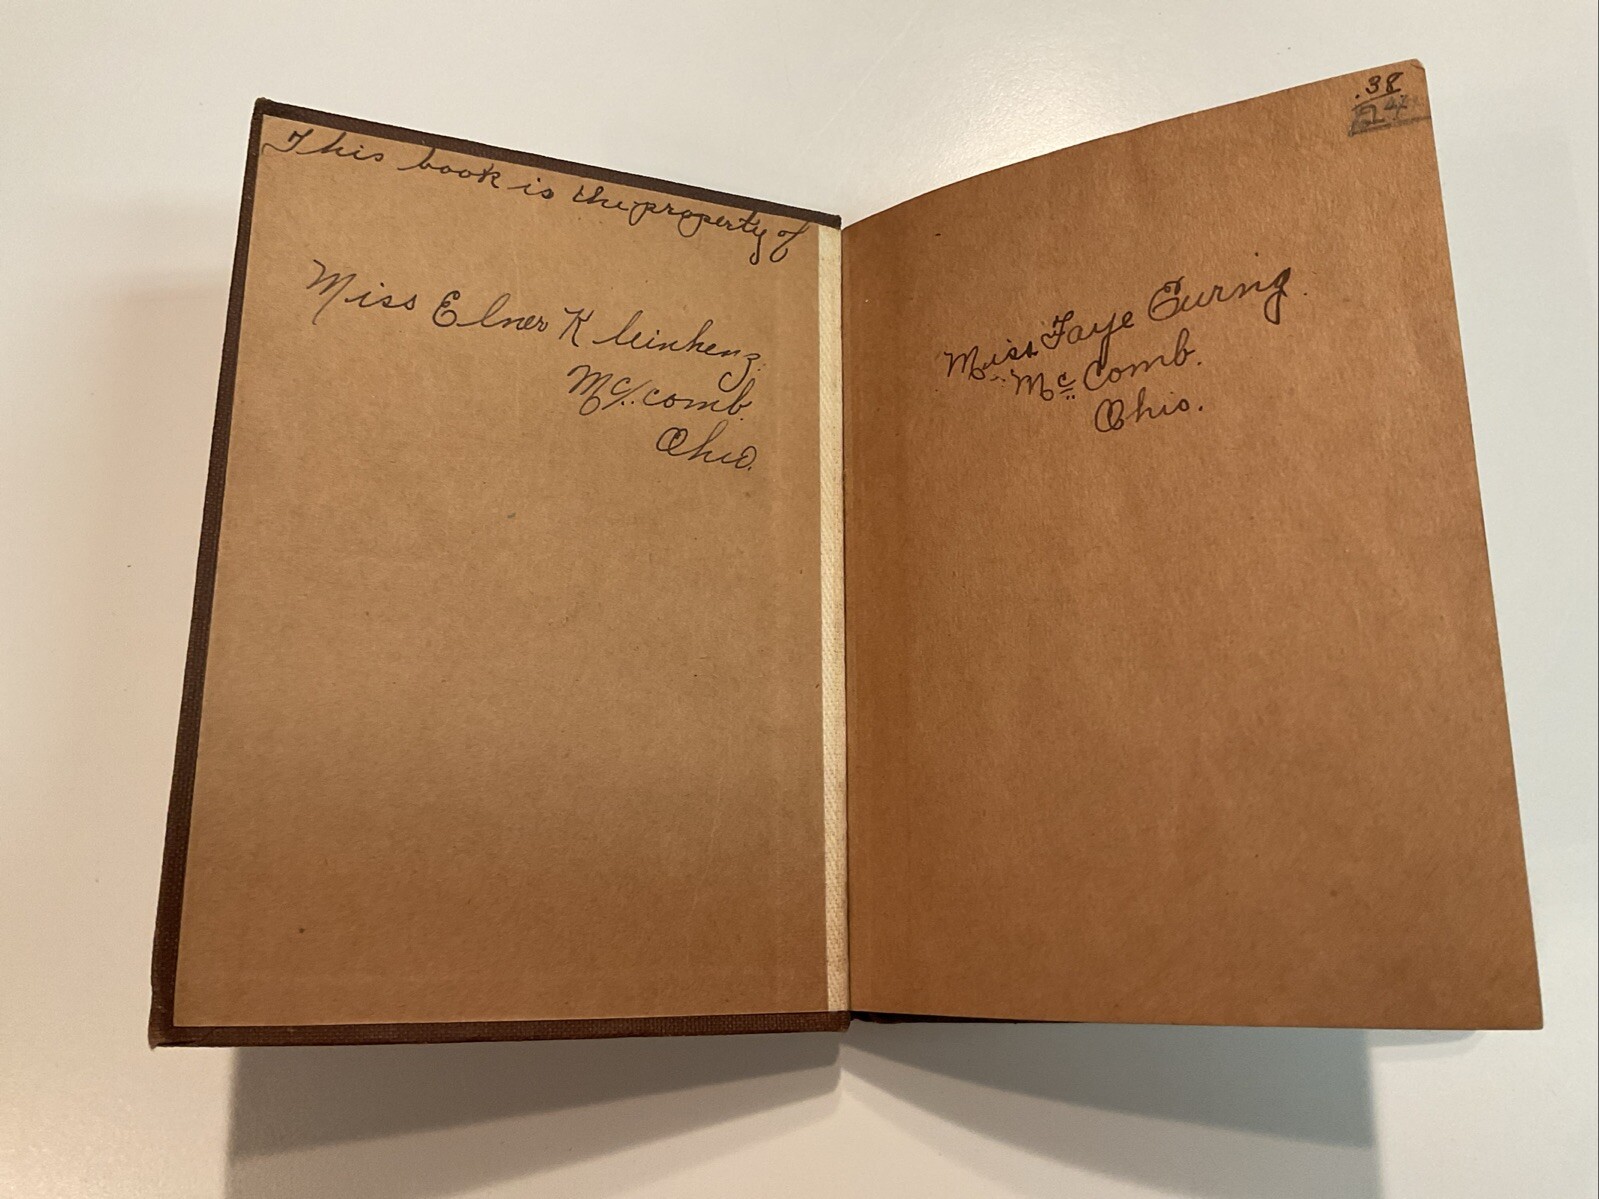 This book is the property of
Miss Elner Kleinhenz
Mc. comb.
Ohio.
.38
Miss Faye Ewing.
Mc Comb.
Ohio.